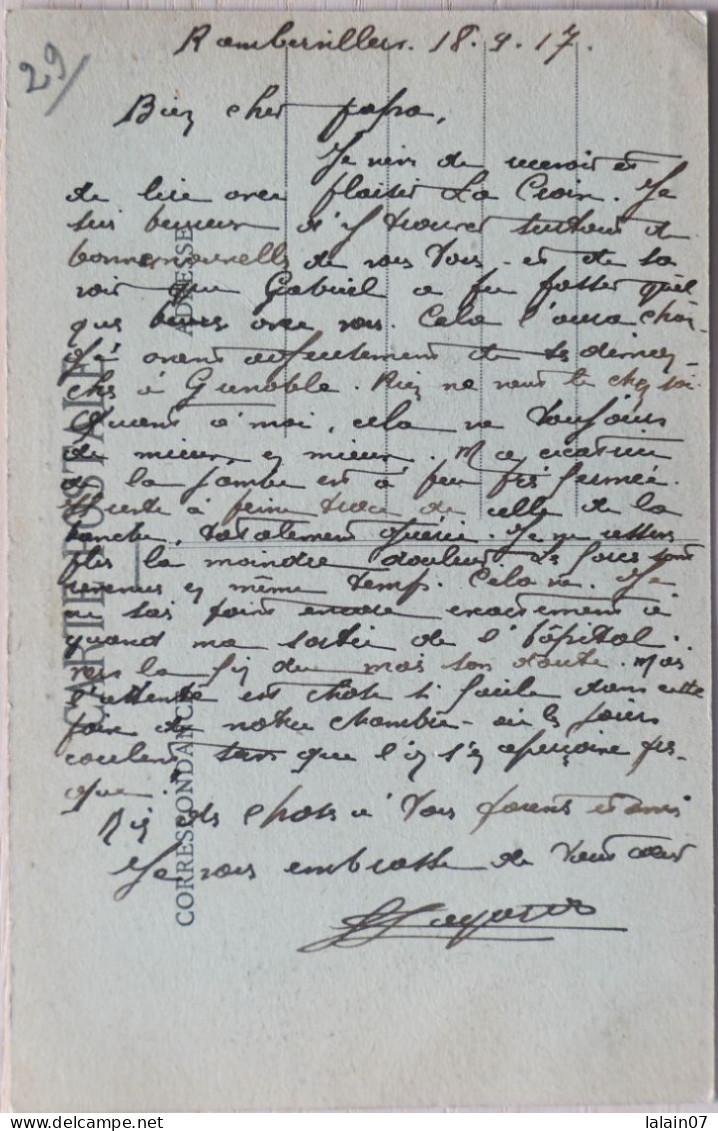 29/
Rambervillers. 18.9.17.
Bien cher papa,
Je viens de recevoir et
de lire avec plaisir La Croix. Je
suis heureux d'y trouver surtout de
bonnes nouvelles de vous tous - et de sa
voir que Gabriel a pu passer quel
ques heures avec vous. Cela l'aura chan
gé avantageusement de ses dimanc
hes à Grenoble. Rien ne vaut le chez soi.
Quant à moi, cela va toujours
de mieux en mieux. Ma cicatrice
de la jambe est à peu près fermée.
Il reste à peine trace de celle de la
hanche, totalement guérie. Je ne ressens
plus la moindre douleur. Les forces sont
revenues en même temps. Cela va. Je
ne sais point encore exactement à
quand ma sortie de l'hôpital.
vers la fin du mois sans doute. Mais
l'attente est chose si facile dans cette
paix de notre chambre - où les jours
coulent sans que l'on s'en aperçoive pres-
que.
Bien des choses à tous parents et amis
Je vous embrasse de tout cœur
CARTE POSTALE
CORRESPONDANCE
ADRESSE
lalain07